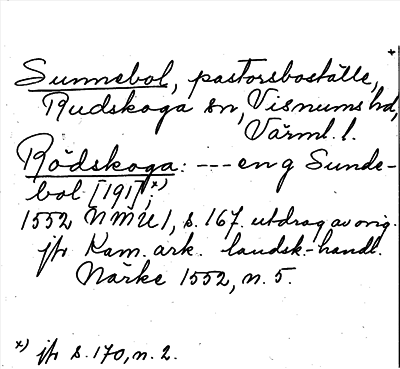 +
Sunnebol, pastorsboställe,
Rudskoga sn, Visnums hd,
Värml. l.
Rödskoga: --- en g Sunde-
bol [191], x)
1552 NMU 1, s. 167. utdrag av orig.
jfr Kam. ark. landsk.-handl.
Närke 1552, n. 5.
x) jfr s. 170, n. 2.